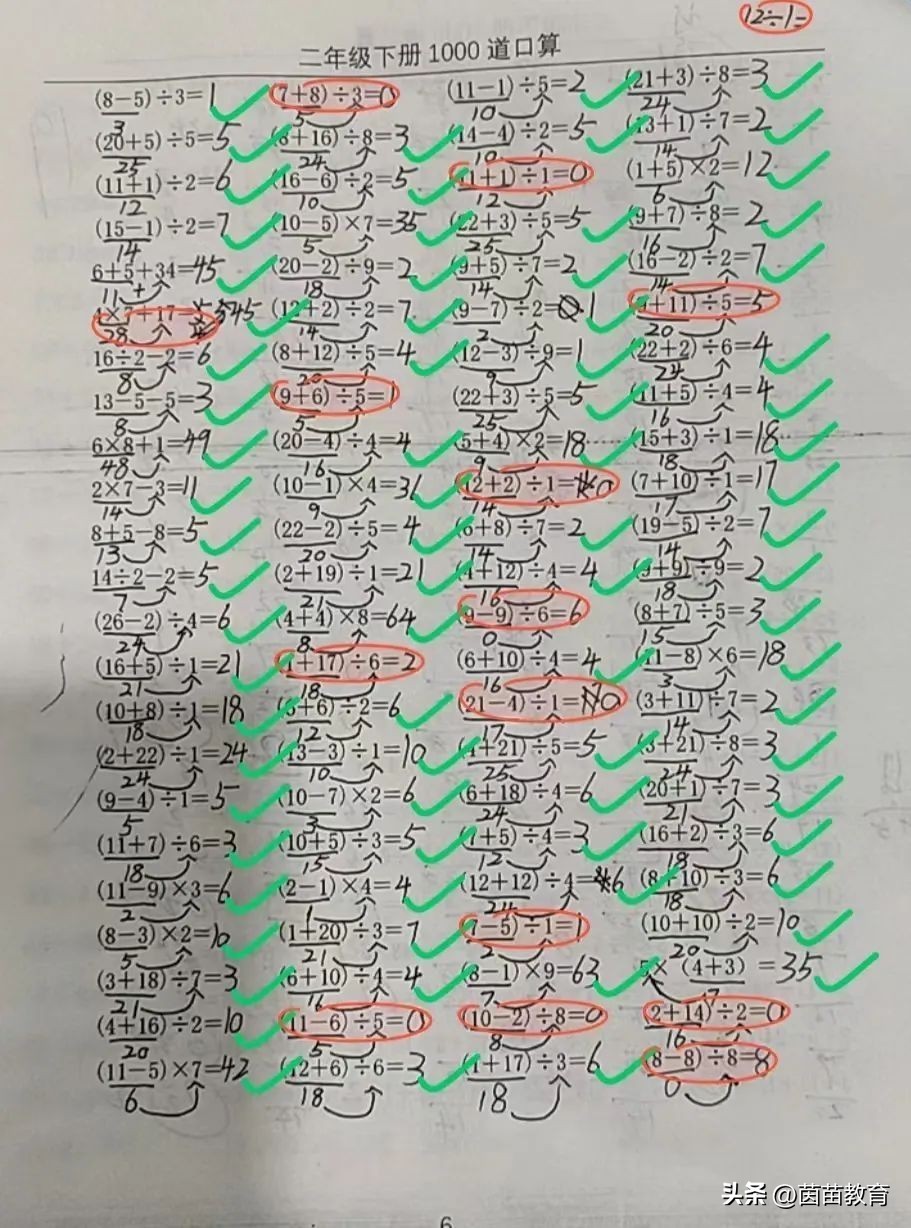 12÷1=
二年级下册1000道口算
(8−5)÷3=1 (7+8)÷3=0 (11−1)÷5=2 (21+3)÷8=3
3 5 10 24
(20+5)÷5=5 (8+16)÷8=3 (14−4)÷2=5 (13+1)÷7=2
25 24 10 14
(11+1)÷2=6 (16−6)÷2=5 (11+1)÷1=0 (1+5)×2=12
12 10 12 6
(15−1)÷2=7 (10−5)×7=35 (22+3)÷5=5 (9+7)÷8=2
14 5 25 16
6+5+34=45 (20−2)÷9=2 (9+5)÷7=2 (16−2)÷2=7
11 + 18 14 14
4×7+17=45 (12+2)÷2=7 (9−7)÷2=1 (9+11)÷5=5
28 14 2 20
16÷2−2=6 (8+12)÷5=4 (12−3)÷9=1 (22+2)÷6=4
8 20 9 24
13−5−5=3 (9+6)÷5=1 (22+3)÷5=5 (11+5)÷4=4
8 5 25 16
6×8+1=49 (20−4)÷4=4 (5+4)×2=18 (15+3)÷1=18
48 16 9 18
2×7−3=11 (10−1)×4=36 (12+2)÷1=0 (7+10)÷1=17
14 9 14 17
8+5−8=5 (22−2)÷5=4 (6+8)÷7=2 (19−5)÷2=7
13 20 14 14
14÷2−2=5 (2+19)÷1=21 (4+12)÷4=4 (9+9)÷9=2
7 21 16 18
(26−2)÷4=6 (4+4)×8=64 (9−9)÷6=6 (8+7)÷5=3
24 8 0 15
(16+5)÷1=21 (1+17)÷6=2 (6+10)÷4=4 (11−8)×6=18
21 18 16 3
(10+8)÷1=18 (6+6)÷2=6 (21−4)÷1=0 (3+11)÷7=2
18 12 17 14
(2+22)÷1=24 (13−3)÷1=10 (4+21)÷5=5 (3+21)÷8=3
24 10 25 24
(9−4)÷1=5 (10−7)×2=6 (6+18)÷4=6 (20+1)÷7=3
5 3 24 21
(11+7)÷6=3 (10+5)÷3=5 (7+5)÷4=3 (16+2)÷3=6
18 15 12 18
(11−9)×3=6 (2−1)×4=4 (12+12)÷4=6 (8+10)÷3=6
2 1 24 18
(8−3)×2=10 (1+20)÷3=7 (7−5)÷1=1 (10+10)÷2=10
5 21 2 20
(3+18)÷7=3 (6+10)÷4=4 (8−1)×9=63 5×(4+3)=35
21 16 7 7
(4+16)÷2=10 (11−6)÷5=0 (10−2)÷8=0 (2+14)÷2=0
20 5 8 16
(11−5)×7=42 (12+6)÷6=3 (1+17)÷3=6 (8−8)÷8=8
6 18 18 0
6
头条 @茵苗教育